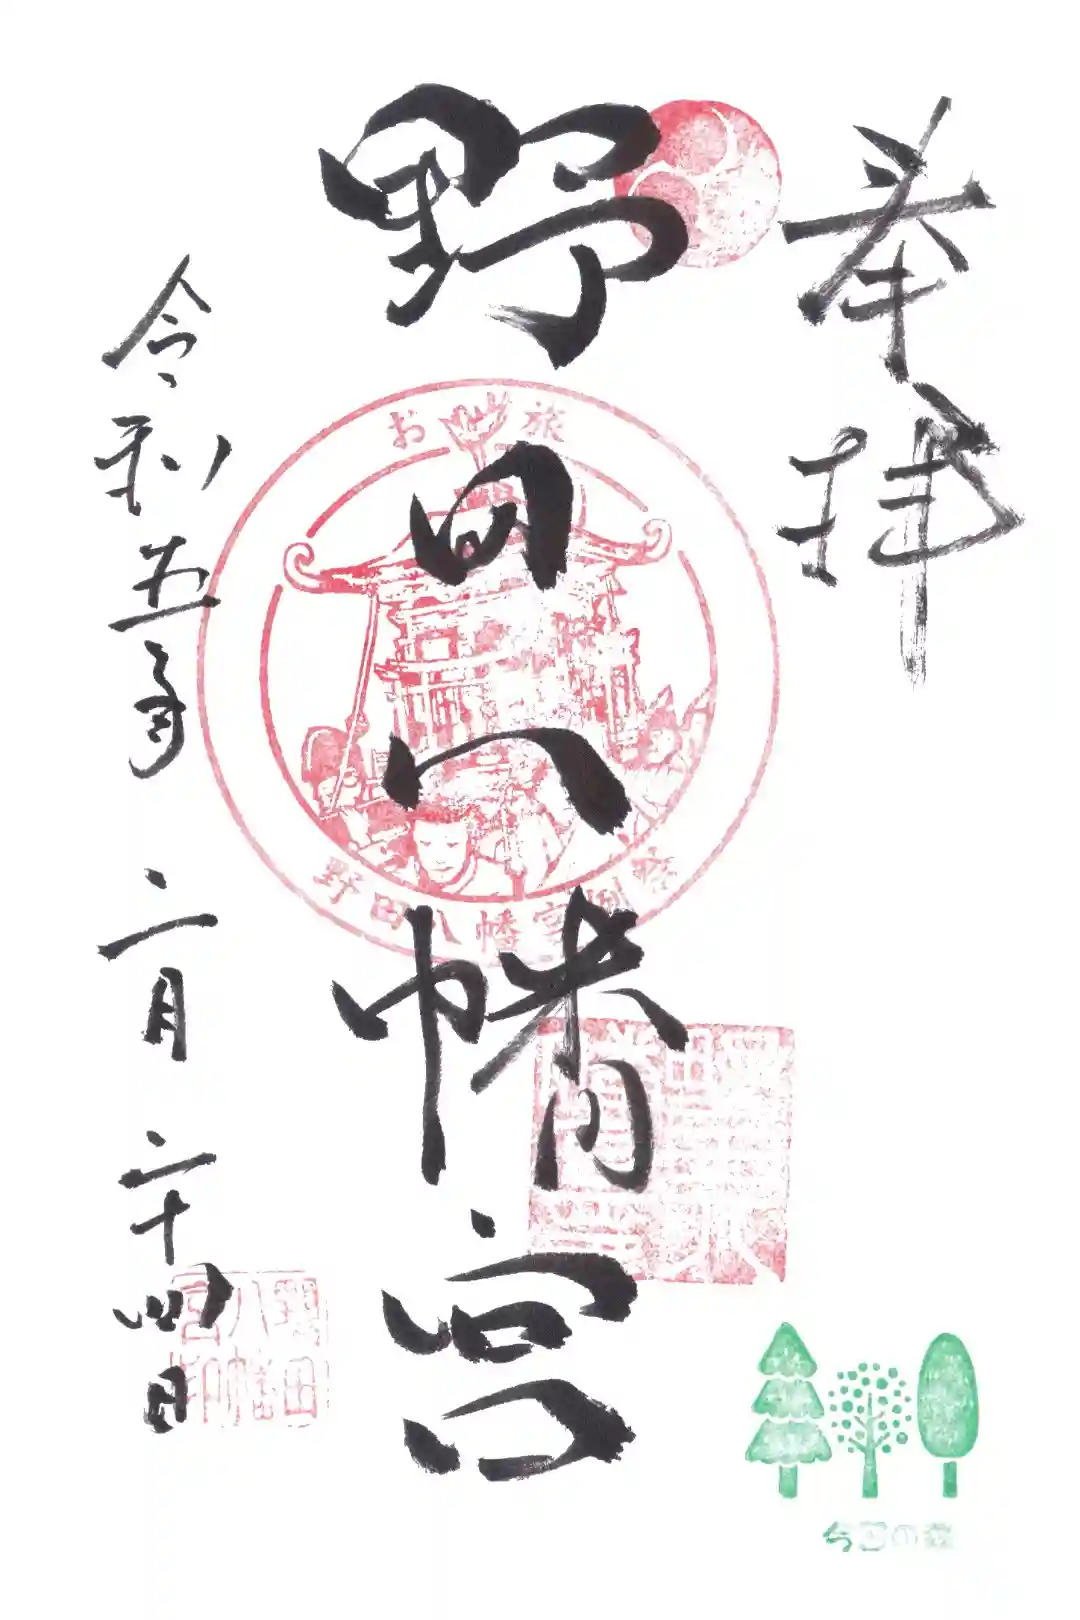 奉拝
野田八幡宮
お旅
野田八幡宮例祭
令和五年二月二十四日
野田八幡宮印